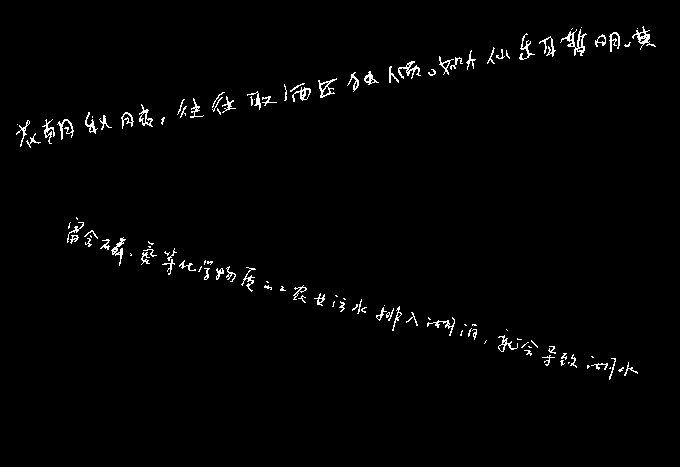 花朝秋月夜，往往取酒还独倾。如听仙乐耳暂明。莫
富含磷、氮等化学物质的工农业污水排入湖泊，就会导致湖水